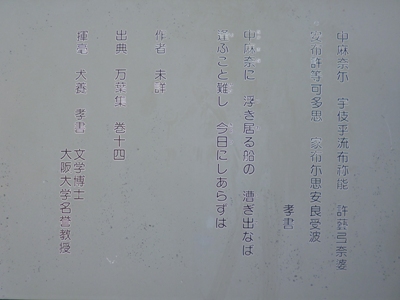 中麻奈尓 宇伎乎流布祢能 許藝弖奈婆
安布許等可多思 家布尓思安良受波
孝書
中麻奈に 浮き居る船の 漕ぎ出なば
逢ふこと難し 今日にしあらずは
作者 未詳
出典 万葉集 巻十四
揮毫 犬養 孝書 文学博士
大阪大学名誉教授